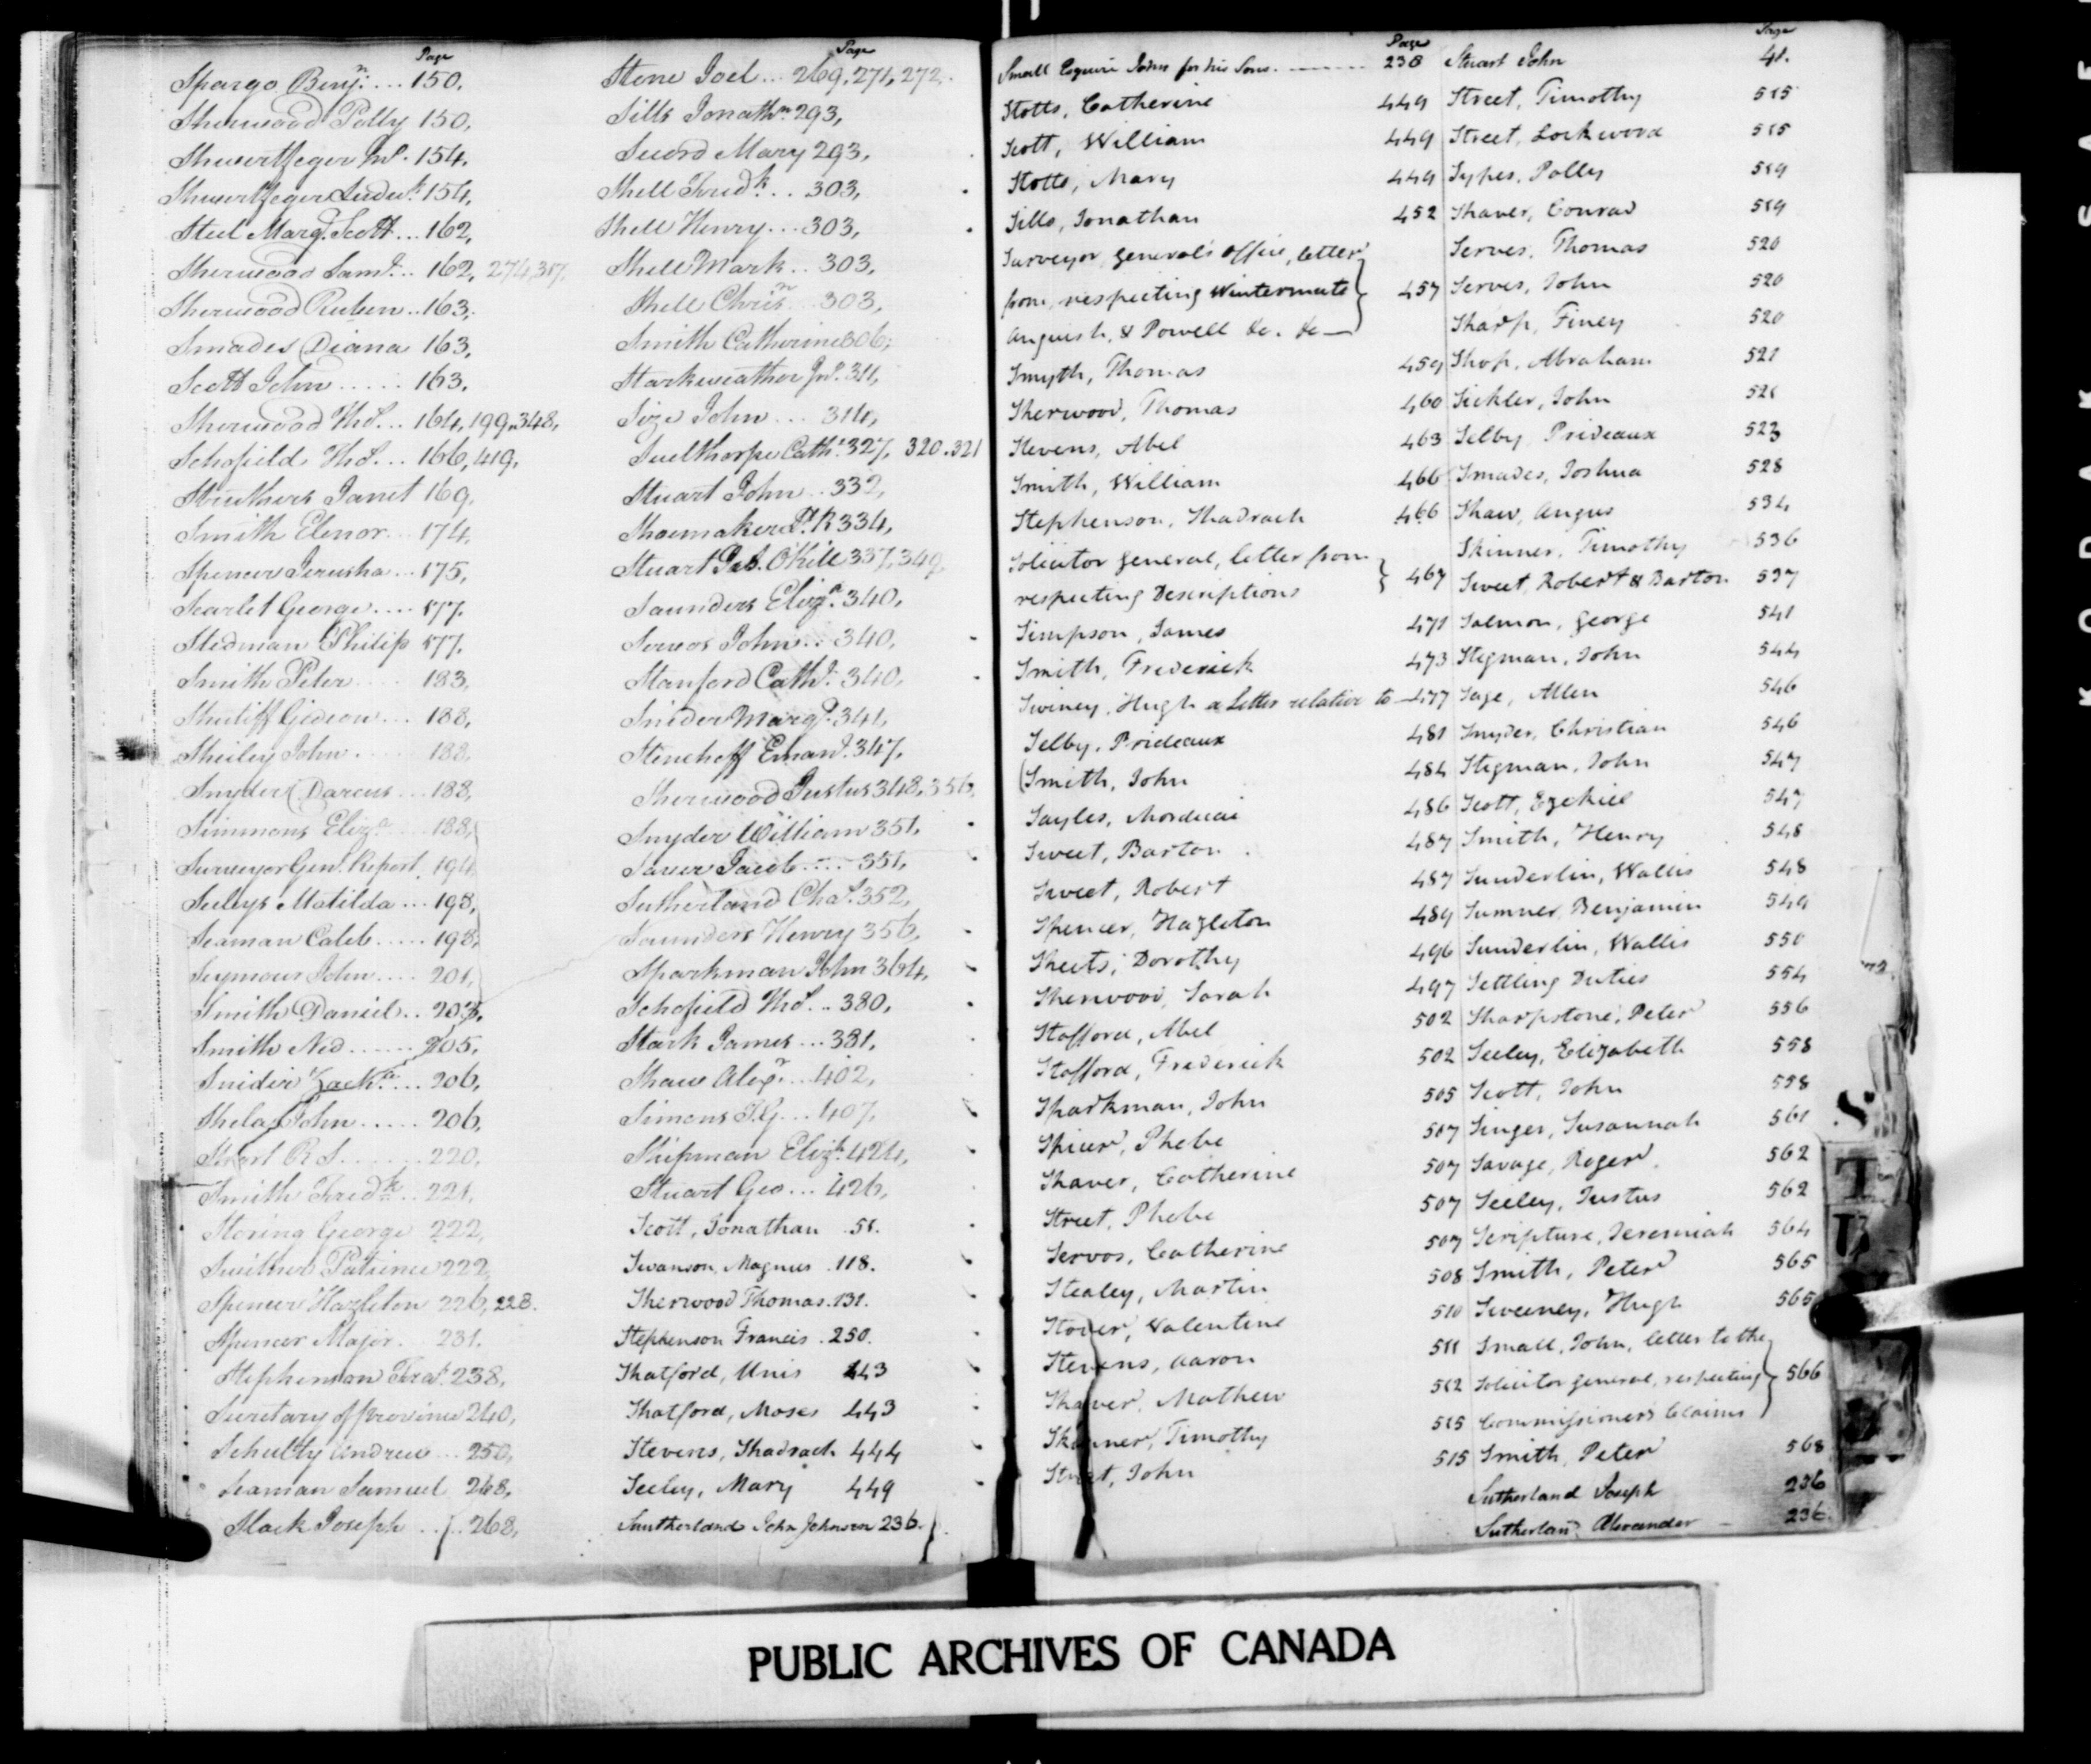 Page
Spargo Benjn ... 150.
Sherwood Polly 150,
Shwertfeger Jno. 154.
Shwertfeger Ludwk 154,
Steel Margt. Scott ... 162,
Sherwood Saml. .. 162, 274, 317,
Sherwood Reuben .. 163,
Smades Diana 163,
Scott John ..... 163.
Sherwood Thos. ... 164, 199, 348,
Schofield Thos. ... 166, 419,
Struthers Janet 169,
Smith Elenor ... 174,
Spencer Jerusha ... 175,
Scarlet George .... 177.
Stedman Philip 177.
Smith Peter .... 183,
Shutliff Gideon ... 188,
Sheiley John .... 188,
Snyder Darcus ... 188,
Simmons Eliza. 188,
Surveyor Genl. Report 194
Seelys Matilda ... 198,
Seaman Caleb ..... 198,
Seymour John .... 201,
Smith Daniel .. 203,
Smith Ned ...... 205,
Snider Zacha. ... 206,
Shelas John ..... 206,
Start R S. ...... 220,
Smith Fredk .. 221,
Storing George 222,
Patience 222,
Spencer Hazleton 226, 228.
Spencer Major. 231.
Stephenson Fras. 238,
Secretary of Province 240,
Andrew ... 250,
Seaman Samuel 268,
Slack Joseph ... 268,
Page
Stone Joel ... 269, 271, 272,
Sills Jonathn. 293,
Secord Mary 293,
Shell Fredk .. 303,
Shell Henry ... 303,
Shell Mark .. 303,
Shell Chrisn ... 303,
Smith Catherine 306,
Starkweather Jno. 311,
Size John ... 314,
Cathe. 327, 320, 321
Stuart John .. 332,
Shoemaker 334,
Stuart Jas. O'Kill 337, 349,
Saunders Eliza. 340,
Servos John ... 340,
Stanford Cathe. 340,
Snider Margt. 341,
Stenehoff Emanl. 347,
Sherwood Justus 348, 356,
Snyder William 351,
Saver Jacob .... 351,
Sutherland Chas. 352,
Saunders Henry 356,
Sparkman John 364,
Schofield Thos. .. 380,
Stark James ... 381,
Shaw Alexr. ... 402,
Simons T.G. ... 407,
Shipman Elizh. 424,
Stuart Geo ... 426,
Scott, Jonathan .51.
Swanson, Magnus .118.
Sherwood Thomas .131.
Stephenson Francis .250.
Shatford, Unis 443
Shatford, Moses 443
Stevens, Shadrach 444
Seeley, Mary 449
Southerland John Johnson 236.
Page
Small Esquire John for his Sons. 238
Stotts, Catherine 449
Scott, William 449
Stotts, Mary 449
Sills, Jonathan 452
Surveyor general's Office, letter
from, respecting Wintermute
Anguish, & Powell &c. &c — 457
Smyth, Thomas 459
Sherwood, Thomas 460
Stevens, Abel 463
Smith, William 466
Stephenson, Shadrach 466
Solicitor general, letter from
respecting Descriptions 467
Simpson, James 471
Smith, Frederick 473
Swiney, Hugh a Letter relative to 477
Selby, Prideaux 481
Smith, John 484
Sayles, Mordicai 486
Sweet, Barton 487
Sweet, Robert 487
Spencer, Hazleton 489
Sheets, Dorothy 496
Sherwood, Sarah 497
Stafford, Abel 502
Stafford, Frederick 502
Sparkman, John 505
Spicer, Phebe 507
Shaver, Catherine 507
Street, Phebe 507
Servos, Catherine 507
Stealey, Martin 508
Stover, Valentine 510
Stevens, Aaron 511
Shaver, Mathew 512
Skinner, Timothy 515
Street, John 515
Page
Stuart John 41.
Street, Timothy 515
Street, Lockwood 515
Sypes, Polly 519
Shaver, Conrad 519
Serves, Thomas 520
Serves, John 520
Sharp, Finey 520
Shop, Abraham 521
Sickler, John 521
Selby, Prideaux 523
Smades, Joshua 528
Shaw, Angus 534
Skinner, Timothy 536
Sweet, Robert & Barton 537
Salmon, George 541
Stegman, John 544
Sage, Allen 546
Snyder, Christian 546
Stegman, John 547
Scott, Ezekiel 547
Smith, Henry 548
Sunderlin, Wallis 548
Sumner, Benjamin 549
Sunderlin, Wallis 550
Settling Duties 554
Sharpstone, Peter 556
Seeley, Elizabeth 558
Scott, John 558
Singer, Susannah 561
Savage, Roger 562
Seeley, Justus 562
Scripture, Jeremiah 564
Smith, Peter 565
Sweeney, Hugh 565
Small, John, letter to the
Solicitor general, respecting
Commissioners Claims 566
Smith, Peter 568
Sutherland Joseph 236
Sutherland Alexander 236.
S
T
PUBLIC ARCHIVES OF CANADA